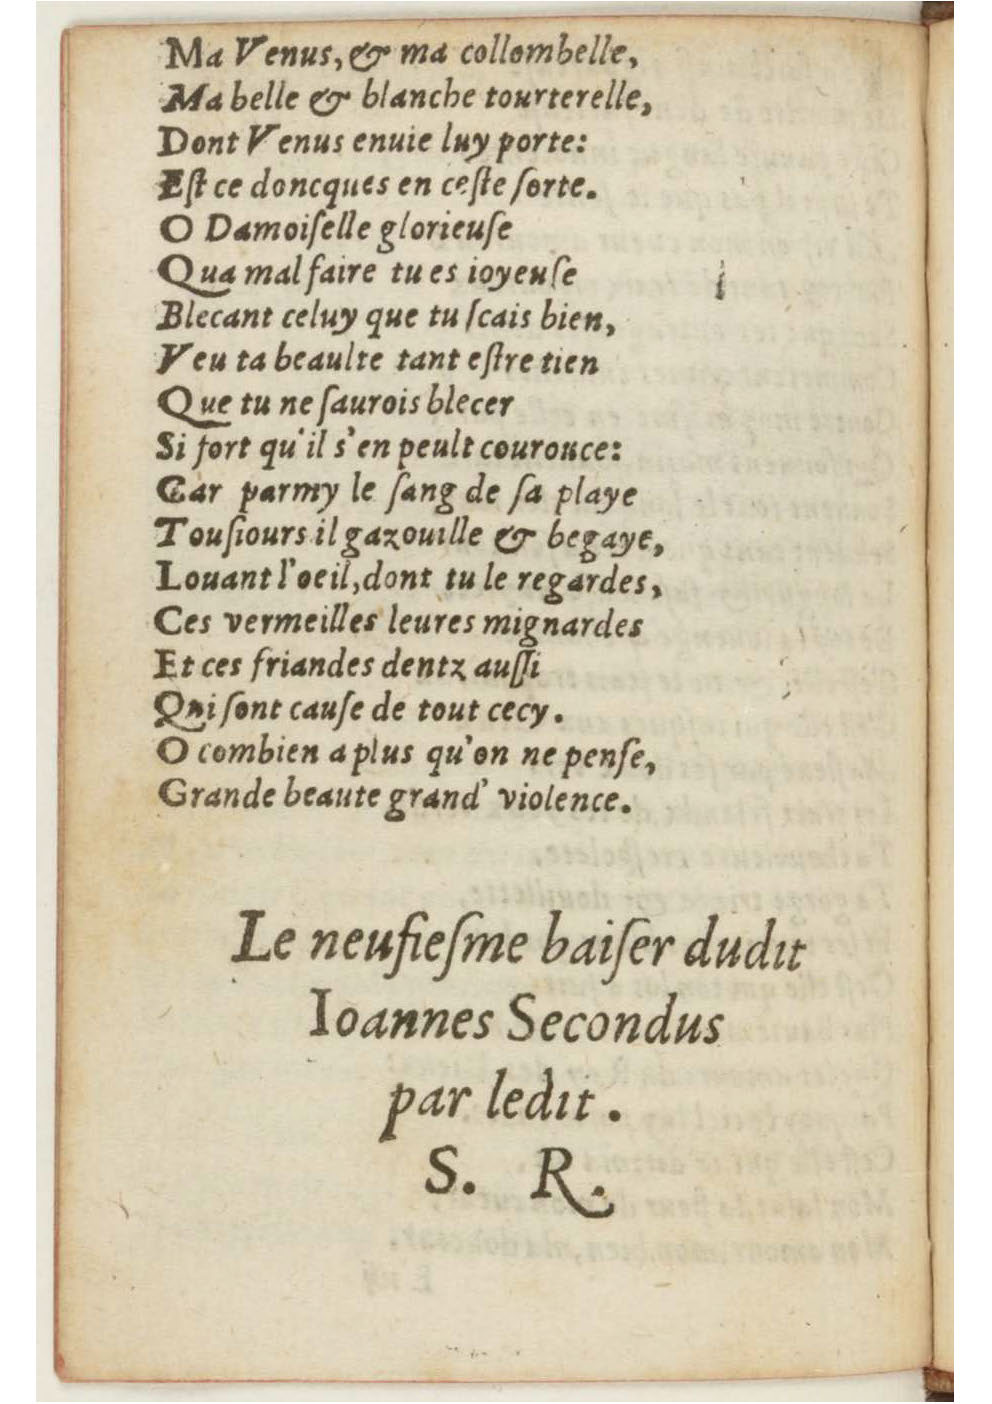 Ma Venus, & ma collombelle,
Ma belle & blanche tourterelle,
Dont Venus enuie luy porte:
Eſt ce doncques en ceſte ſorte.
O Damoiſelle glorieuſe
Qua mal faire tu es ioyeuſe
Blecant celuy que tu ſcais bien,
Veu ta beaulte tant eſtre tien
Que tu ne ſaurois blecer
Si fort qu'il s'en peult courouce:
Car parmy le ſang de ſa playe
Touſiours il gazouille & begaye,
Louant l'oeil, dont tu le regardes,
Ces vermeilles leures mignardes
Et ces friandes dentz auſſi
Qui ſont cauſe de tout cecy.
O combien a plus qu'on ne penſe,
Grande beaute grand' violence.
Le neufieſme baiſer dudit
Ioannes Secondus
par ledit.
S. R.